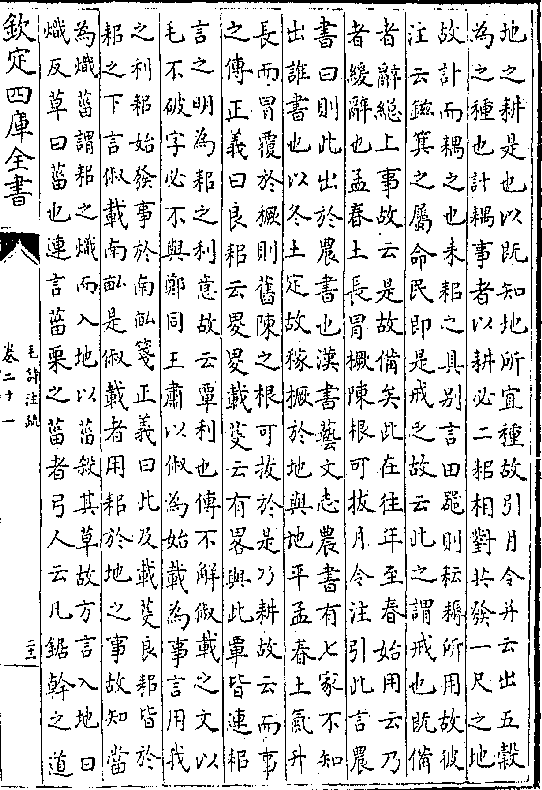 地之耕是也以既知地所宜種故引月令并云出五穀
為之種也計耦事者以耕必二耜相對共發一尺之地
故計而耦之也耒耜之具别言田器則耘耨所用故彼
注云鎡箕之屬命民即是戒之故云此之謂戒也既備
者辭緫上事故云是故備矣此在往年至春始用云乃
者緩辭也孟春土長冒橛陳根可拔月令注引此言農
書曰則此出於農書也漢書藝文志農書有七家不知
出誰書也以冬土定故稼橛於地與地平孟春土氣升
長而冒覆於橛則舊陳之根可拔於是乃耕故云而事
之傳正義曰良耜云畟畟載芟云有畧與此覃皆連耜
言之明為耜之利意故云覃利也傳不解俶載之文以
毛不破字必不與鄭同王肅以俶為始載為事言用我
之利耜始發事於南畝箋正義曰此及載芟良耜皆於
耜之下言俶載南畝是俶載者用耜於地之事故知當
為熾菑謂耜之熾而入地以菑殺其草故方言入地曰
熾反草曰菑也連言菑栗之菑者弓人云凡鋸幹之道
欽定四庫全書
毛詩注疏
卷二十一
二十二